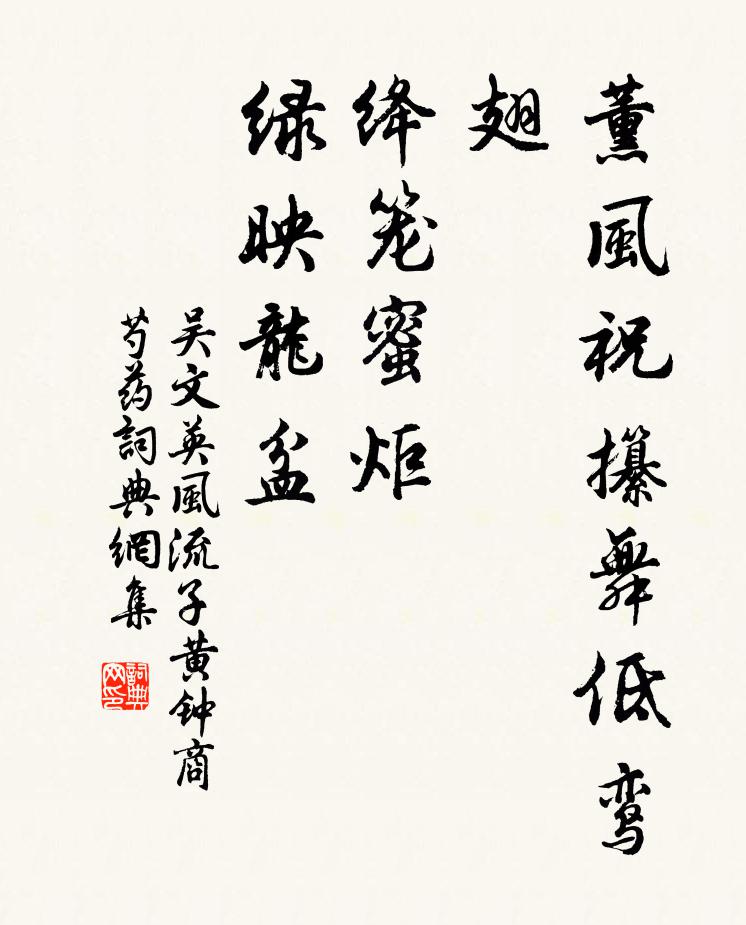 薰風祝攥舞低鸾
翅
绛笼蜜炬
绿映龍盆
吴文英風流子黄钟商
芍药詞典網集
詞典
网印